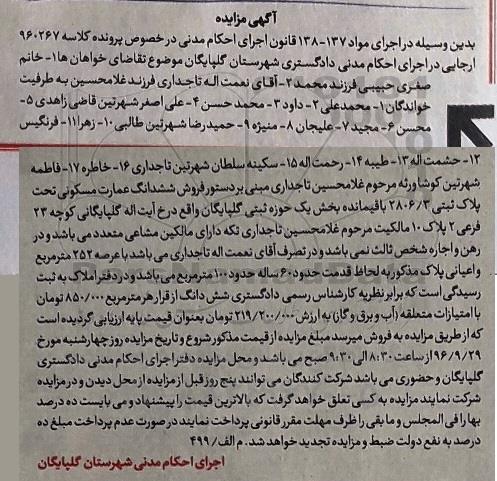 آگهی مزایده
بدین وسیله در اجرای مواد ۱۳۷-۱۳۸ قانون اجرای احکام مدنی در خصوص پرونده کلاسه ۹۶۰۲۶۷
ارجایی در اجرای احکام مدنی دادگستری شهرستان گلپایگان موضوع تقاضای خواهان ها۱- خانم
صغری حبیبی فرزند محمد۲- آقای نعمت اله تاجداری فرزند غلامحسین به طرفیت
خواندگان ۱- محمدعلی ۲- داود ۳- محمد حسن ۴- علی اصغر شهرتین قاضی زاهدی ۵-
محسن ۶- مجید ۷- علیجان ۸- منیژه ۹- حمیدرضا شهرتین طالبی ۱۰- زهرا ۱۱- فرنگیس
۱۲- حشمت اله ۱۳- طیبه ۱۴- رحمت اله ۱۵- سکینه سلطان شهرتین تاجداری ۱۶- خاطره ۱۷- فاطمه
شهرتین کوشا ورثه مرحوم غلامحسین تاجداری مبنی بر دستور فروش ششدانگ عمارت مسکونی تحت
پلاک ثبتی ۲۸۰۶/۳ باقیمانده بخش یک حوزه ثبتی گلپایگان واقع در خ آیت اله گلپایگانی کوچه ۲۳
فرعی ۲ پلاک ۱۰ مالکیت مرحوم غلامحسین تاجداری تکه دارای مالکین مشاعی متعدد می باشد و در
رهن و اجاره شخص ثالث نمی باشد و در تصرف آقای نعمت اله تاجداری می باشد با عرصه ۲۵۲ مترمربع
و اعیانی پلاک مذکور به لحاظ قدمت حدود ۶۰ ساله حدود ۱۰۰ مترمربع می باشد و در دفتر املاک به ثبت
رسیدگی است که برابر نظریه کارشناس رسمی دادگستری شش دانگ از قرار هر مترمربع ۸۵۰/۰۰۰ تومان
با امتیازات متعلقه (آب و برق و گاز) به ارزش ۲۱۹/۲۰۰/۰۰۰ تومان بعنوان قیمت پایه ارزیابی گردیده است
که از طریق مزایده به فروش میرسد مبلغ مزایده از قیمت مذکور شروع و تاریخ مزایده روز چهارشنبه مورخ
۹۶/۹/۲۹ از ساعت ۸:۳۰ الی ۹:۳۰ صبح می باشد و محل مزایده دفتر اجرای احکام مدنی دادگستری
گلپایگان و حضوری می باشد شرکت کنندگان می توانند پنج روز قبل از مزایده از محل دیدن و در مزایده
شرکت نمایند مزایده به کسی تعلق خواهد گرفت که بالاترین قیمت را پیشنهاد و می بایست ده درصد
بها را فی المجلس و ما بقی را ظرف مهلت مقرر قانونی پرداخت نمایند در صورت عدم پرداخت مبلغ ده
درصد به نفع دولت ضبط و مزایده تجدید خواهد شد. م الف/ ۴۹۹
اجرای احکام مدنی شهرستان گلپایگان